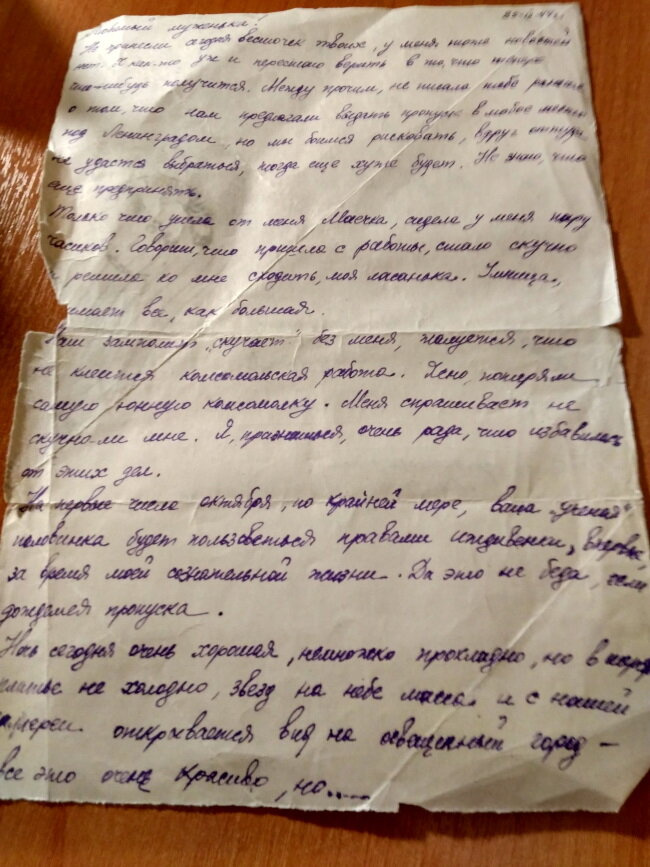 Любимый муженька!
Не принесли сегодня весточек твоих, у меня тоже новостей
нет. Я как-то уж и перестала верить в то, что
что-нибудь получится. Между прочим, не писала тебе раньше
о том, что нам предлагали выдать пропуск в любое место
под Ленинградом, но мы боимся рисковать, вдруг оттуда
не удастся выбраться, тогда еще хуже будет. Не знаю, что
еще предпринять.
Только что ушла от меня Маечка, сидела у меня пару
часиков. Говорит, что пришла с работы, стало скучно
и решила ко мне сходить, моя ласанька. Умница,
знает все, как большая.
Наш замполит "скучает" без меня, жалуется, что
не клеится комсомольская работа. Ясно, потеряли
самую юнную комсомолку. Меня спрашивает не
скучно ли мне. Я, признаться, очень рада, что избавилась
от этих дел.
На первые числа октября, по крайней мере, ваша "ученая"
половинка будет пользоваться правами иждивенки, впервые
за время моей сознательной жизни. Да это не беда, если
дождемся пропуска.
Ночь сегодня очень хорошая, немножко прохладно, но в
платье не холодно, звезд на небе масса и с нашей
галереи открывается вид на освещенный город —
все это очень красиво, но.....